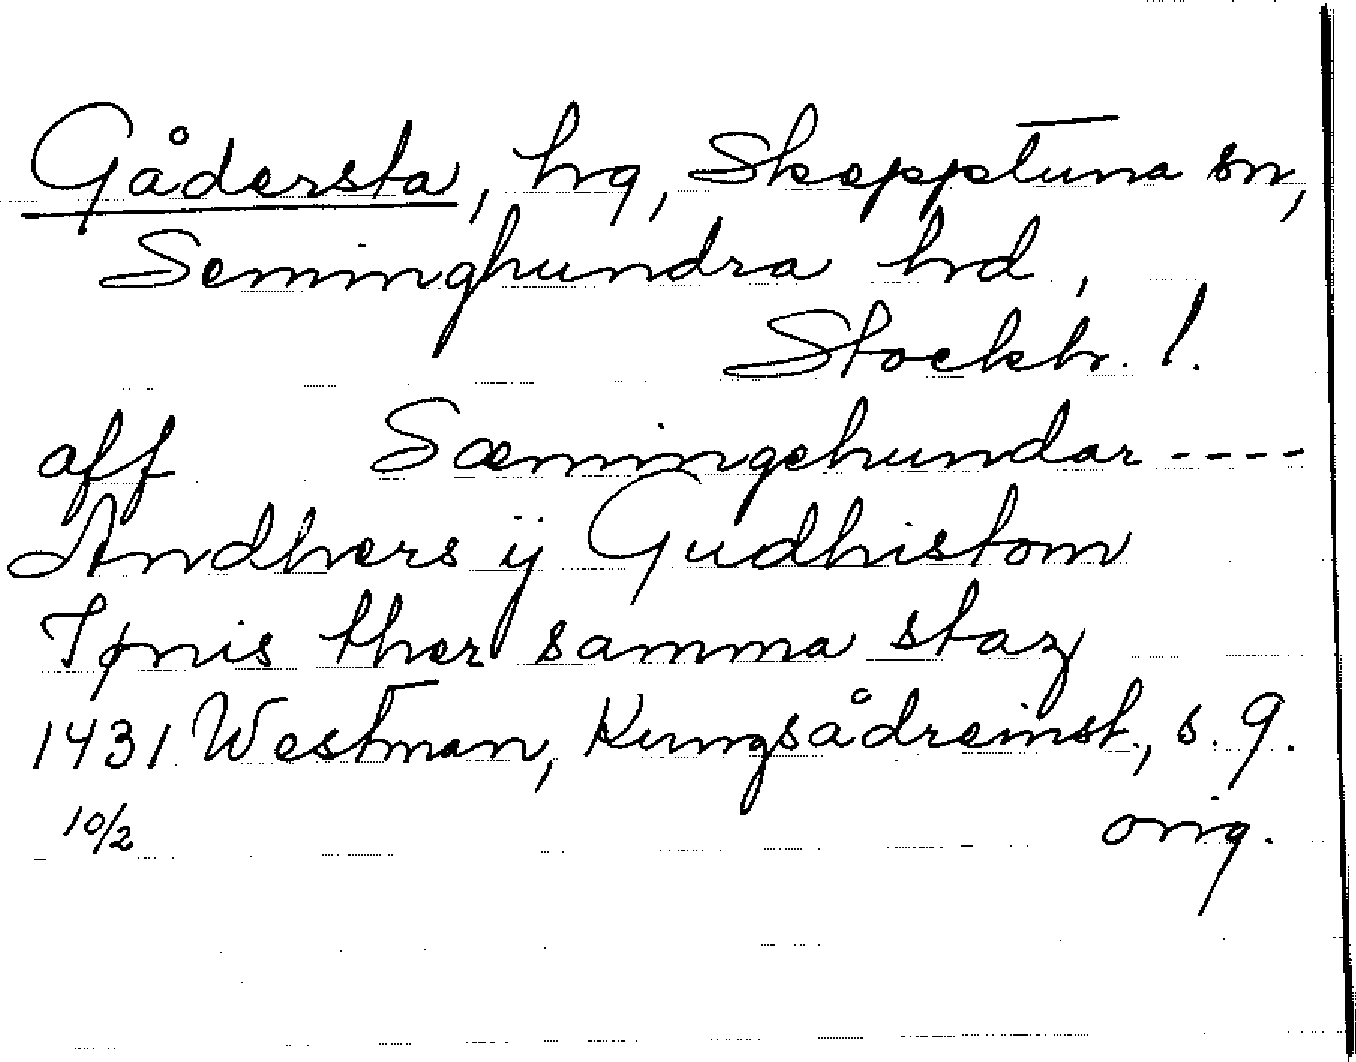 Gådersta, hrg, Skepptuna sn,
Seminghundra hrd,
Stockh. l.
aff Sæmingehundar ----
Andhers ÿ Gudhistom
Tønis ther samma staz
1431 Westman, Kungsådreinst., s. 9.
10/2 orig.